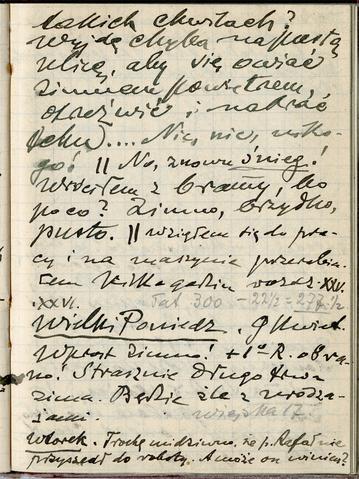 takich chwilach?
Wyjdę chyba na pustą
ulicę, aby się owiać
zimnem powietrzem,
otrzeźwić i nabrać
tchu.... Nic, nic, niko-
go! || No, znowu śnieg!
Wróciłem z bramy, bo
poco? Zimno, brzydko,
pusto. || Wziąłem się do pra-
cy i na maszynie przerobi-
łem kilka godzin rozdz. XXV.
XXVI. 300 - 22½ = 277½
Wielki Poniedz. 9 Kwiet.
Wprost zimno! +1° R. o
no! Strasznie długo trwa
zima. Będzie źle z urodza-
jami. Wiejska 17.
Wtorek. Trochę mi dziwno, że p. Rafał nie
przyszedł do roboty. A może on winien?